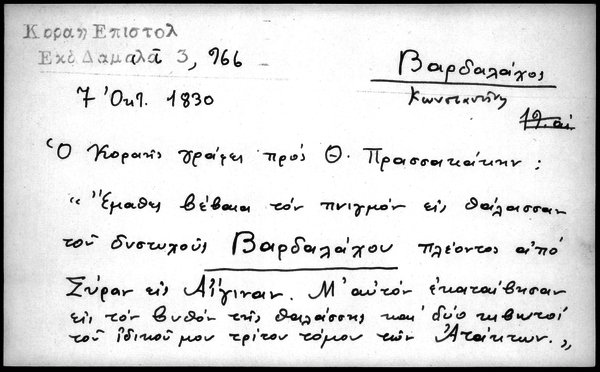 Κοραη Επιστολ
Εκδ Δαμαλᾶ 3, 966
Βαρδαλάχος
Κωνσταντῖνος
7 Ὀκτ. 1830
19. αἰ
Ὁ Κοραῆς γράφει πρός Θ. Πρασσακάκην :
"Ἔμαθες βέβαια τόν πνιγμόν εἰς θάλασσαν
τοῦ δυστυχοῦς Βαρδαλάχου πλέοντος ἀπό
Σύραν εἰς Αἴγιναν. Μ' αὐτόν ἐκαταίβησαν
εἰς τόν βυθόν τῆς θαλάσσης καί δύο κιβωτοί
τοῦ ἰδικοῦ μου τρίτου τόμου τῶν Ἀτάκτων."